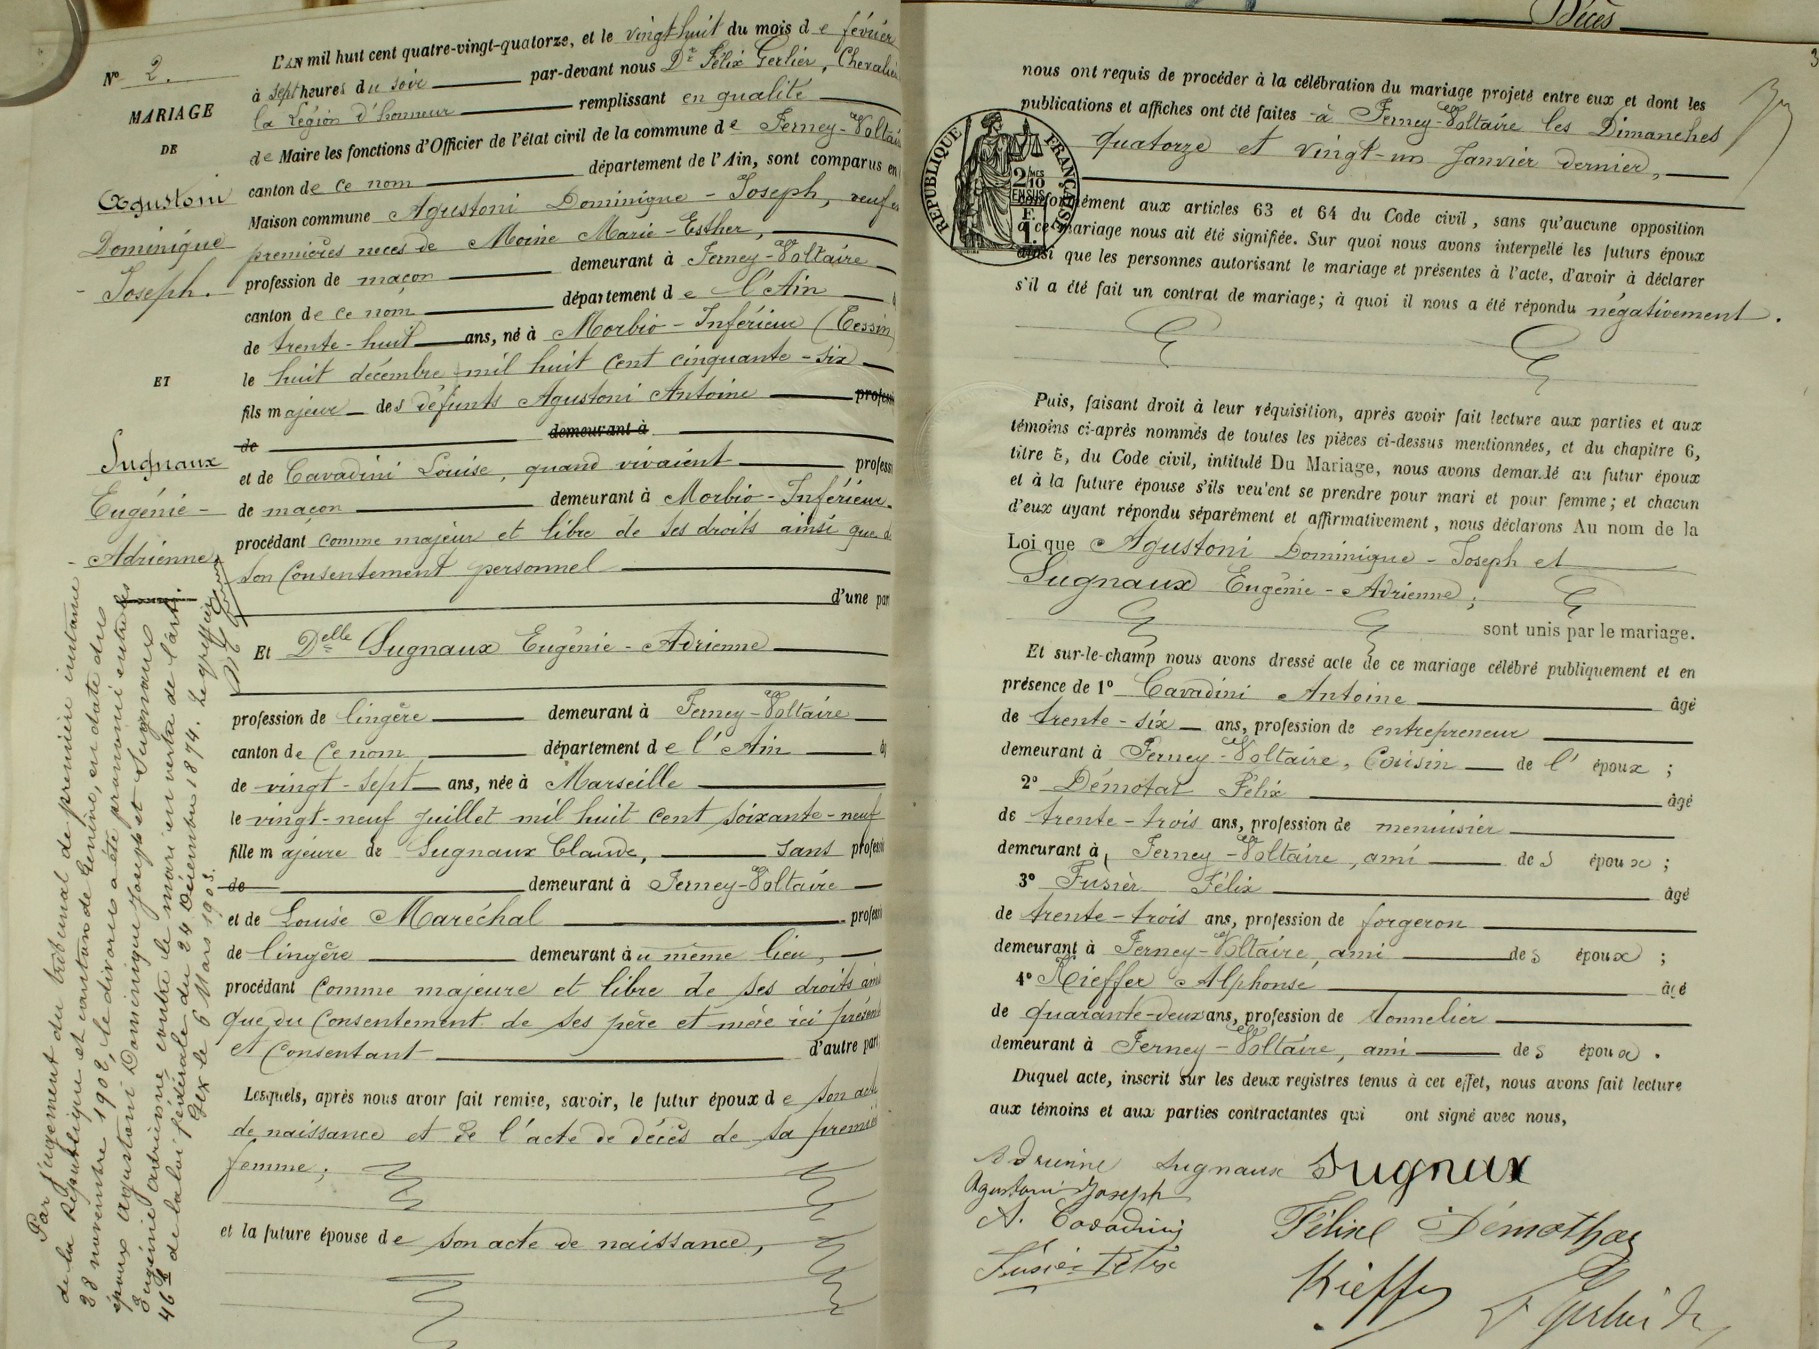 N° 2.
MARIAGE
DE
Agustoni
Dominique
Joseph.
ET
Sugnaux
Eugénie-
Adrienne
L'AN mil huit cent quatre-vingt-quatorze, et le vingt huit du mois de février
à sept heures du soir par-devant nous Dr Félix Gerlier, Chevalier
la Légion d'honneur remplissant en qualité
de Maire les fonctions d'Officier de l'état civil de la commune de Ferney-Voltaire
canton de ce nom département de l'Ain, sont comparus en
Maison commune Agustoni Dominique-Joseph, veuf en
premières noces de Moine Marie-Esther,
profession de maçon demeurant à Ferney-Voltaire
canton de ce nom département de l'Ain
de trente-huit ans, né à Morbio-Inférieur (Tessin)
le huit décembre mil huit cent cinquante-six
fils majeur des défunts Agustoni Antoine profess
de demeurant à
et de Cavadini Louise, quand vivaient profess
de maçon demeurant à Morbio-Inférieur.
procédant comme majeur et libre de ses droits ainsi que de
son consentement personnel
d'une part
Et Delle Sugnaux Eugénie-Adrienne
profession de lingère demeurant à Ferney-Voltaire
canton de ce nom département de l'Ain
de vingt-sept ans, née à Marseille
le vingt-neuf juillet mil huit cent soixante-neuf
fille majeure de Sugnaux Claude, sans profess
de demeurant à Ferney-Voltaire
et de Louise Maréchal profess
de lingère demeurant au même lieu,
procédant comme majeure et libre de ses droits ainsi
que du consentement de ses père et mère ici présent
et consentant d'autre part
Lesquels, après nous avoir fait remise, savoir, le futur époux de son acte
de naissance et de l'acte de décès de sa première
femme;
et la future épouse de son acte de naissance,
Par jugement du tribunal de première instance
de la République et canton de Genève, en date du
28 novembre 1902, le divorce a été prononcé entre les
époux Agustoni Dominique Joseph et Sugnaux
Eugénie Adrienne contre le mari en vertu de l'art.
46 de la loi fédérale du 24 Décembre 1874.
Gex le 6 Mars 1903. Le greffier
Décès
3
nous ont requis de procéder à la célébration du mariage projeté entre eux et dont les
publications et affiches ont été faites à Ferney-Voltaire les Dimanches
quatorze et vingt-un Janvier dernier,
RÉPUBLIQUE FRANÇAISE
2/10
EN SUS
F.
1.
conformément aux articles 63 et 64 du Code civil, sans qu'aucune opposition
à ce mariage nous ait été signifiée. Sur quoi nous avons interpellé les futurs époux
ainsi que les personnes autorisant le mariage et présentes à l'acte, d'avoir à déclarer
s'il a été fait un contrat de mariage; à quoi il nous a été répondu négativement.
Puis, faisant droit à leur réquisition, après avoir fait lecture aux parties et aux
témoins ci-après nommés de toutes les pièces ci-dessus mentionnées, et du chapitre 6,
titre 5, du Code civil, intitulé Du Mariage, nous avons demandé au futur époux
et à la future épouse s'ils veulent se prendre pour mari et pour femme; et chacun
d'eux ayant répondu séparément et affirmativement, nous déclarons Au nom de la
Loi que Agustoni Dominique-Joseph et
Sugnaux Eugénie-Adrienne;
sont unis par le mariage.
Et sur-le-champ nous avons dressé acte de ce mariage célébré publiquement et en
présence de 1° Cavadini Antoine âgé
de trente-six ans, profession de entrepreneur
demeurant à Ferney-Voltaire, Cousin de l'époux;
2° Démotat Félix âgé
de trente-trois ans, profession de menuisier
demeurant à Ferney-Voltaire, ami des époux;
3° Fusier Félix âgé
de trente-trois ans, profession de forgeron
demeurant à Ferney-Voltaire, ami des époux;
4° Kieffer Alphonse âgé
de quarante-deux ans, profession de tonnelier
demeurant à Ferney-Voltaire, ami des époux.
Duquel acte, inscrit sur les deux registres tenus à cet effet, nous avons fait lecture
aux témoins et aux parties contractantes qui ont signé avec nous,
Adrienne Sugnaux Sugnaux
Agustoni Joseph
A. Cavadini Félix Démothaz
Fusier Félix
Kieffer